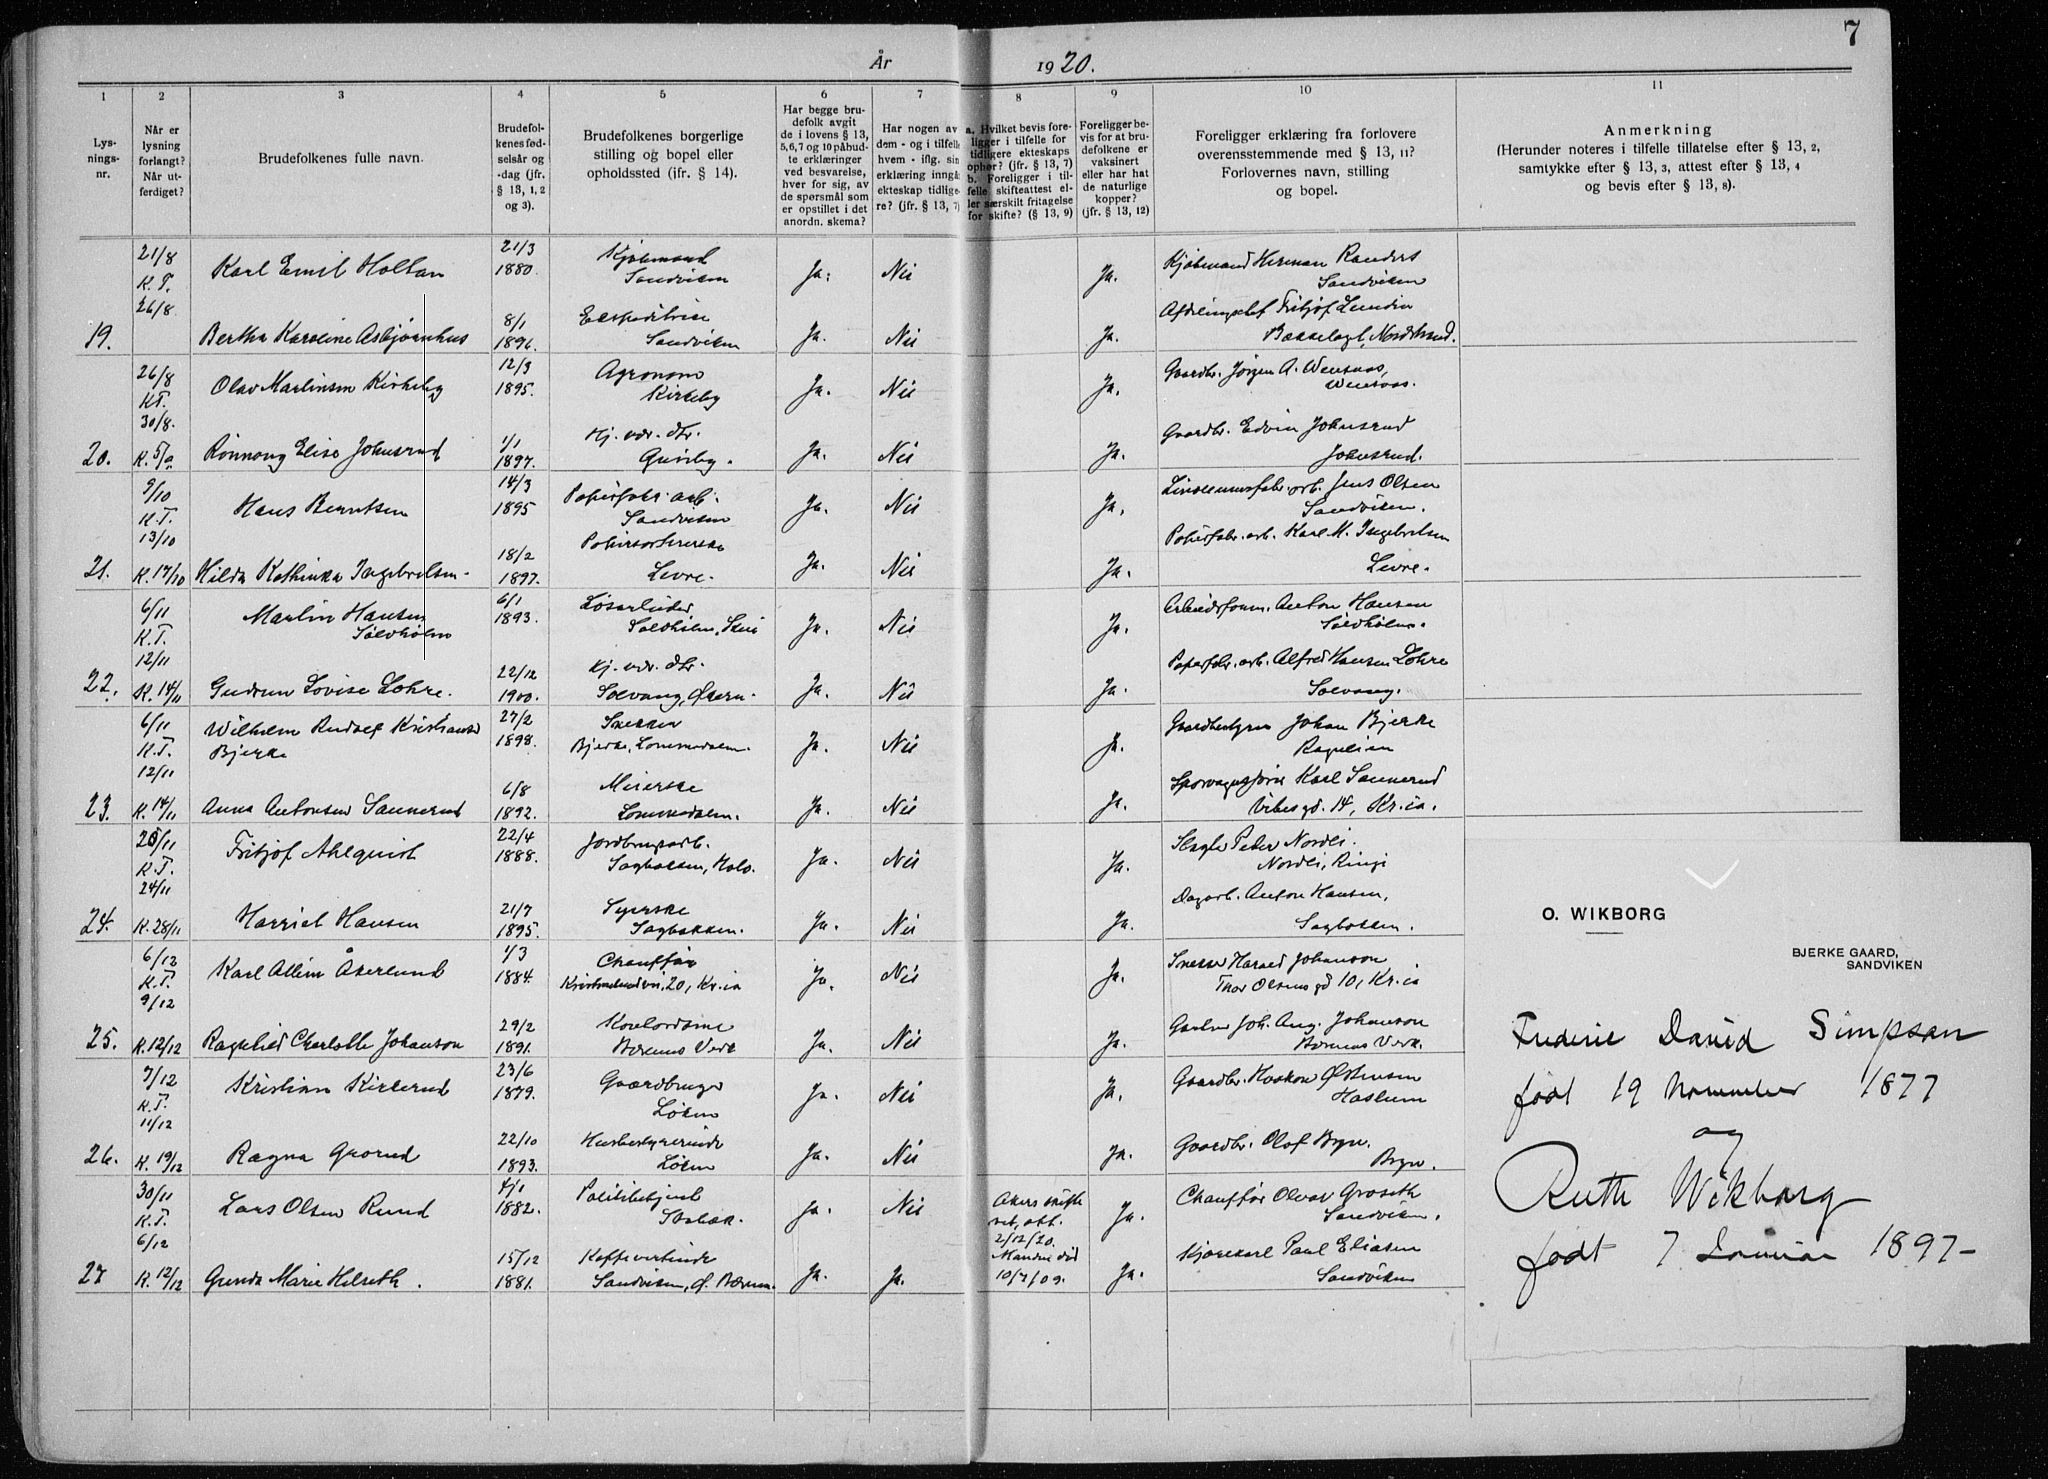 7
År 1920.
1 2 3 4 5 6 7 8 9 10 11
Lys-
nings-
nr.
Når er
lysning
forlangt?
Når ut-
ferdiget?
Brudefolkenes fulle navn.
Brudefol-
kenes fød-
selsår og
-dag (jfr.
§ 13, 1, 2
og 3).
Brudefolkenes borgerlige
stilling og bopel eller
opholdssted (jfr. § 14).
Har begge bru-
defolk avgit
de i lovens § 13,
5,6,7 og 10 påbud-
te erklæringer
ved besvarelse,
hver for sig, av
de spørsmål som
er opstillet i det
anordn. skema?
Har nogen av
dem - og i tilfelle
hvem - iflg. sin
erklæring inngåt
ekteskap tidlige-
re? (jfr. § 13, 7)
a. Hvilket bevis fore-
ligger i tilfelle for
tidligere ekteskaps
ophør? (jfr. § 13, 7)
b. Foreligger i til-
felle skifteattest el-
ler særskilt fritagelse
for skifte? (§ 13, 9)
Foreligger be-
vis for at bru-
defolkene er
vaksinert
eller har hat
de naturlige
kopper?
(jfr. § 13, 12)
Foreligger erklæring fra forlovere
overensstemmende med § 13, 11?
Forlovernes navn, stilling
og bopel.
Anmerkning
(Herunder noteres i tilfelle tillatelse efter § 13, 2,
samtykke efter § 13, 3, attest efter § 13, 4
og bevis efter § 13, 8).
21/8 K.T. 26/8 Karl Emil Holtan 21/3 1880. Kjøbmand Sandviken Ja. Nei Ja. Kjøbmand Herman Randers Sandviken
19. Bertha Karoline Asbjørnhus 8/1 1896. Ekspeditrise Sandviken Ja. Nei Ja. Fritjof Lundin Bækkelaget, Nordstrand.
26/8 K.T. 30/8. Olav Martinsen Kirkeby 12/3 1895. Agronom Kirkeby Ja. Nei Ja. Gaardbr. Jørgen A. Wensaas, Wensaas.
20. K. 5/9 Rønnaug Elise Johnsrud 1/1 1897. Hj. vær. dtr. Ja. Nei Ja. Gaardbr. Edvin Johnsrud Johnsrud.
9/10 K.T. 13/10 Hans Berntsen 14/3 1895 Papirfabr. arb. Sandviken Ja. Nei Ja. Linoleumsfabr. arb. Jens Olsen Sandviken.
21. K. 17/10 Hilda Kathinka Ingebretsen 18/2 1897. Papirsortererske Levre. Ja. Nei Ja. Papirfabr. arb. Karl M. Ingebretsen Levre.
6/11 K.T. 12/11 Martin Hansen Solvholm 6/1 1893. Løsarbeider Ja. Nei Ja. Arbeidsform. Anton Hansen Solvholm.
22. K. 14/11 Gudrun Lovise Lohre. 22/12 1900. Hj. vær. dtr. Solvang, Ja. Nei Ja. Papirfabr. arb. Alfred Hansen Lohre Solvang.
6/11 K.T. 12/11 Wilhelm Rudolf Kristiansen Bjerke 27/2 1898. Snekker Bjerke, Lommedalen. Ja. Nei Ja. Gaardbestyrer Johan Bjerke
23. K. 14/11 Anna Antonsen Sannerud 6/8 1892. Meierske Lommedalen. Ja. Nei Ja. Sporvognsfører Karl Sannerud Vibes gd. 14, Kr.ia.
20/11 K.T. 24/11 Fritjof Ahlquist 22/4 1888. Jordbrugsarb. Sagbakken, Ja. Nei Ja. Peter Nordli. Nordli,
24. K. 28/11 Harriet Hansen 21/7 1895. Syerske Sagbakken. Ja. Nei Ja. Dagarb. Anton Hansen, Sagbakken.
6/12 K.T. 9/12 Karl Allim Åkerlund 1/3 1884. Chauffør 20, Kr.ia Ja. Nei Ja. Snekker Harald Johanson Thor Olsens gd 10, Kr.ia
25. K. 12/12 Ragnhild Charlotte Johanson 29/2 1891. Kontordame Bærums Verk Ja. Nei Ja. Joh. Aug. Johanson Bærums Verk.
7/12 K.T. 11/12 Kristian Kirkerud 23/6 1879. Gaardbruger Løken Ja. Nei Ja. Gaardbr. Haakon Østensen Haslum
26. K. 19/12 Ragna Grorud 22/10 1893. Husbestyrerinde Løken Ja. Nei Ja. Gaardbr. Olaf Bryn. Bryn.
30/11 K.T. 6/12 Lars Olsen Rund 4/1 1882. Politibetjent Stabæk. Ja. Nei Akers skifte ret, att. 2/12/20. Ja. Chauffør Olvar Groseth Sandviken.
27 K. 12/12 Gunda Marie Helseth. 15/12 1881. Kaffevertinde Sandviken, Ø. Bærum. Ja. Ja. Manden død 10/7/09. Ja. Kjørekarl Paul Eliasen Sandviken
O. WIKBORG
BJERKE GAARD,
SANDVIKEN
Frederic David Simpson
født 19 November 1877
og
Ruth Wikborg
født 7 Januar 1897-